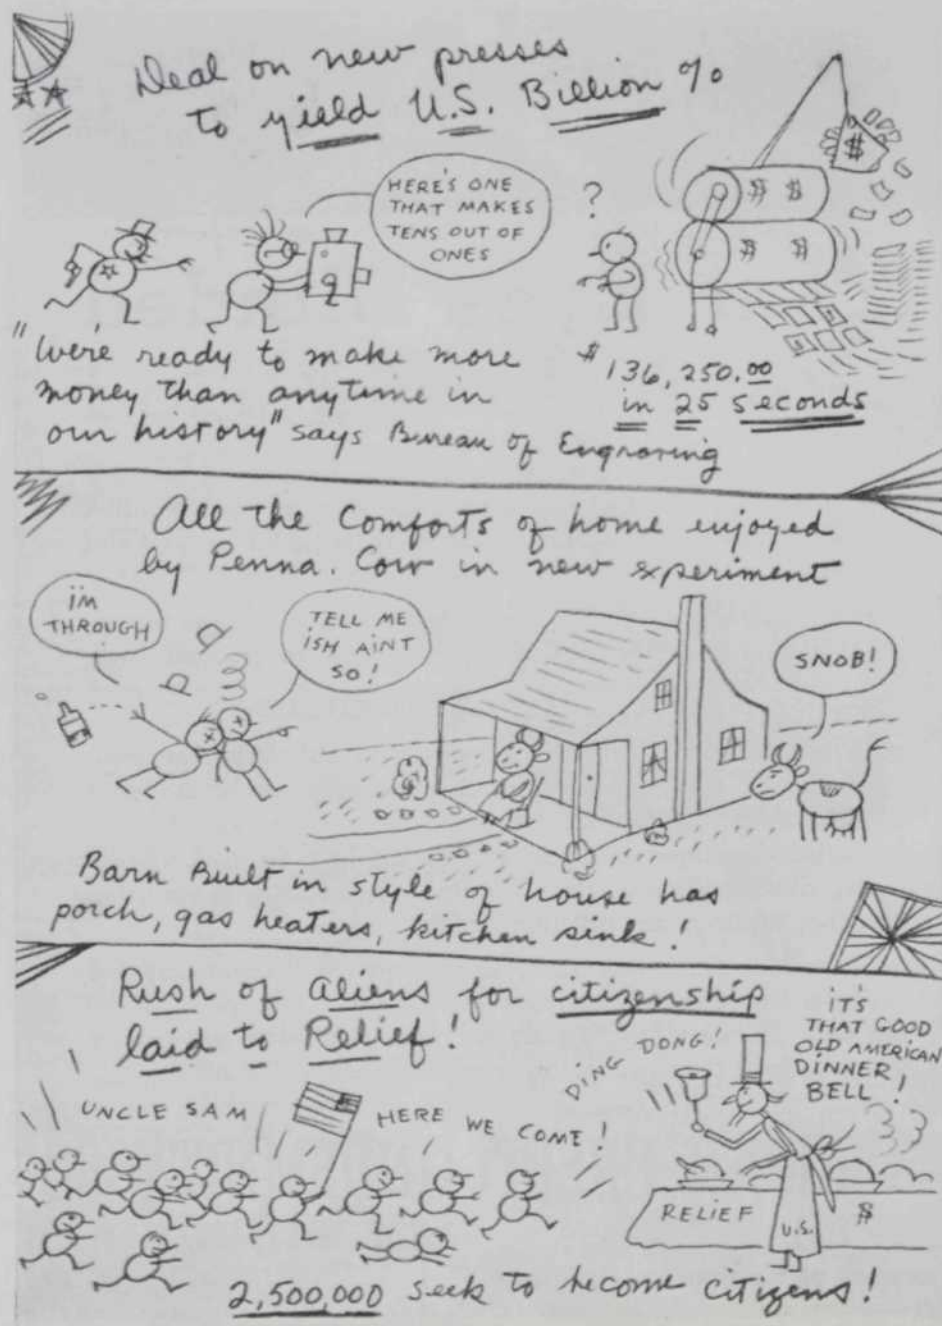 Deal on new presses
to yield U.S. Billion %
HERE'S ONE
THAT MAKES
TENS OUT OF
ONES
?
$
$ $
$ $
"We're ready to make more
money than anytime in
our history" says Bureau of Engraving
$136,250.00
in 25 seconds
All the Comforts of home enjoyed
by Penna. Cow in new experiment
I'M
THROUGH
TELL ME
ISH AINT
SO!
SNOB!
Barn Built in style of house has
porch, gas heaters, kitchen sink!
Rush of aliens for citizenship
laid to Relief!
UNCLE SAM
HERE WE COME!
DING DONG!
IT'S
THAT GOOD
OLD AMERICAN
DINNER
BELL!
RELIEF
U.S.
$
2,500,000 seek to become citizens!